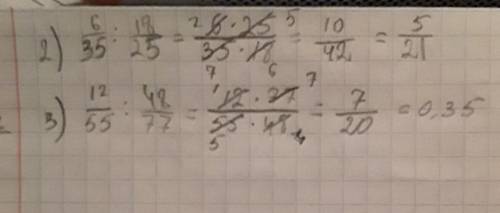 2) 6/35 : 18/25 = 2 6 · 25 5 / 35 · 18 7 6 = 10/42 = 5/21
3) 12/55 : 48/77 = 1 12 · 77 7 / 55 · 48 5 4 = 7/20 = 0,35